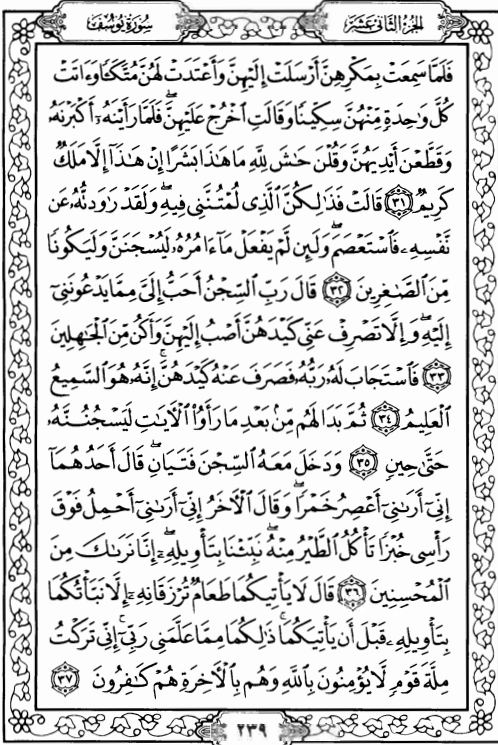 سُورَةُ يُوسُفَ
الجزء الثاني عشر
فَلَمَّا سَمِعَتْ بِمَكْرِهِنَّ أَرْسَلَتْ إِلَيْهِنَّ وَأَعْتَدَتْ لَهُنَّ مُتَّكَـًٔا وَءَاتَتْ
كُلَّ وَٰحِدَةٍ مِّنْهُنَّ سِكِّينًا وَقَالَتِ ٱخْرُجْ عَلَيْهِنَّۖ فَلَمَّا رَأَيْنَهُۥٓ أَكْبَرْنَهُۥ
وَقَطَّعْنَ أَيْدِيَهُنَّ وَقُلْنَ حَٰشَ لِلَّهِ مَا هَٰذَا بَشَرًا إِنْ هَٰذَآ إِلَّا مَلَكٌ
كَرِيمٌ ٣١ قَالَتْ فَذَٰلِكُنَّ ٱلَّذِى لُمْتُنَّنِى فِيهِۖ وَلَقَدْ رَٰوَدتُّهُۥ عَن
نَّفْسِهِۦ فَٱسْتَعْصَمَۖ وَلَئِن لَّمْ يَفْعَلْ مَآ ءَامُرُهُۥ لَيُسْجَنَنَّ وَلَيَكُونًا
مِّنَ ٱلصَّٰغِرِينَ ٣٢ قَالَ رَبِّ ٱلسِّجْنُ أَحَبُّ إِلَىَّ مِمَّا يَدْعُونَنِىٓ
إِلَيْهِۖ وَإِلَّا تَصْرِفْ عَنِّى كَيْدَهُنَّ أَصْبُ إِلَيْهِنَّ وَأَكُن مِّنَ ٱلْجَٰهِلِينَ
٣٣ فَٱسْتَجَابَ لَهُۥ رَبُّهُۥ فَصَرَفَ عَنْهُ كَيْدَهُنَّۚ إِنَّهُۥ هُوَ ٱلسَّمِيعُ
ٱلْعَلِيمُ ٣٤ ثُمَّ بَدَا لَهُم مِّنۢ بَعْدِ مَا رَأَوُا۟ ٱلْءَايَٰتِ لَيَسْجُنُنَّهُۥ
حَتَّىٰ حِينٍ ٣٥ وَدَخَلَ مَعَهُ ٱلسِّجْنَ فَتَيَانِۖ قَالَ أَحَدُهُمَآ
إِنِّىٓ أَرَىٰنِىٓ أَعْصِرُ خَمْرًاۖ وَقَالَ ٱلْءَاخَرُ إِنِّىٓ أَرَىٰنِىٓ أَحْمِلُ فَوْقَ
رَأْسِى خُبْزًا تَأْكُلُ ٱلطَّيْرُ مِنْهُۖ نَبِّئْنَا بِتَأْوِيلِهِۦٓۖ إِنَّا نَرَىٰكَ مِنَ
ٱلْمُحْسِنِينَ ٣٦ قَالَ لَا يَأْتِيكُمَا طَعَامٌ تُرْزَقَانِهِۦٓ إِلَّا نَبَّأْتُكُمَا
بِتَأْوِيلِهِۦ قَبْلَ أَن يَأْتِيَكُمَاۚ ذَٰلِكُمَا مِمَّا عَلَّمَنِى رَبِّىٓۚ إِنِّى تَرَكْتُ
مِلَّةَ قَوْمٍ لَّا يُؤْمِنُونَ بِٱللَّهِ وَهُم بِٱلْءَاخِرَةِ هُمْ كَٰفِرُونَ ٣٧
٢٣٩